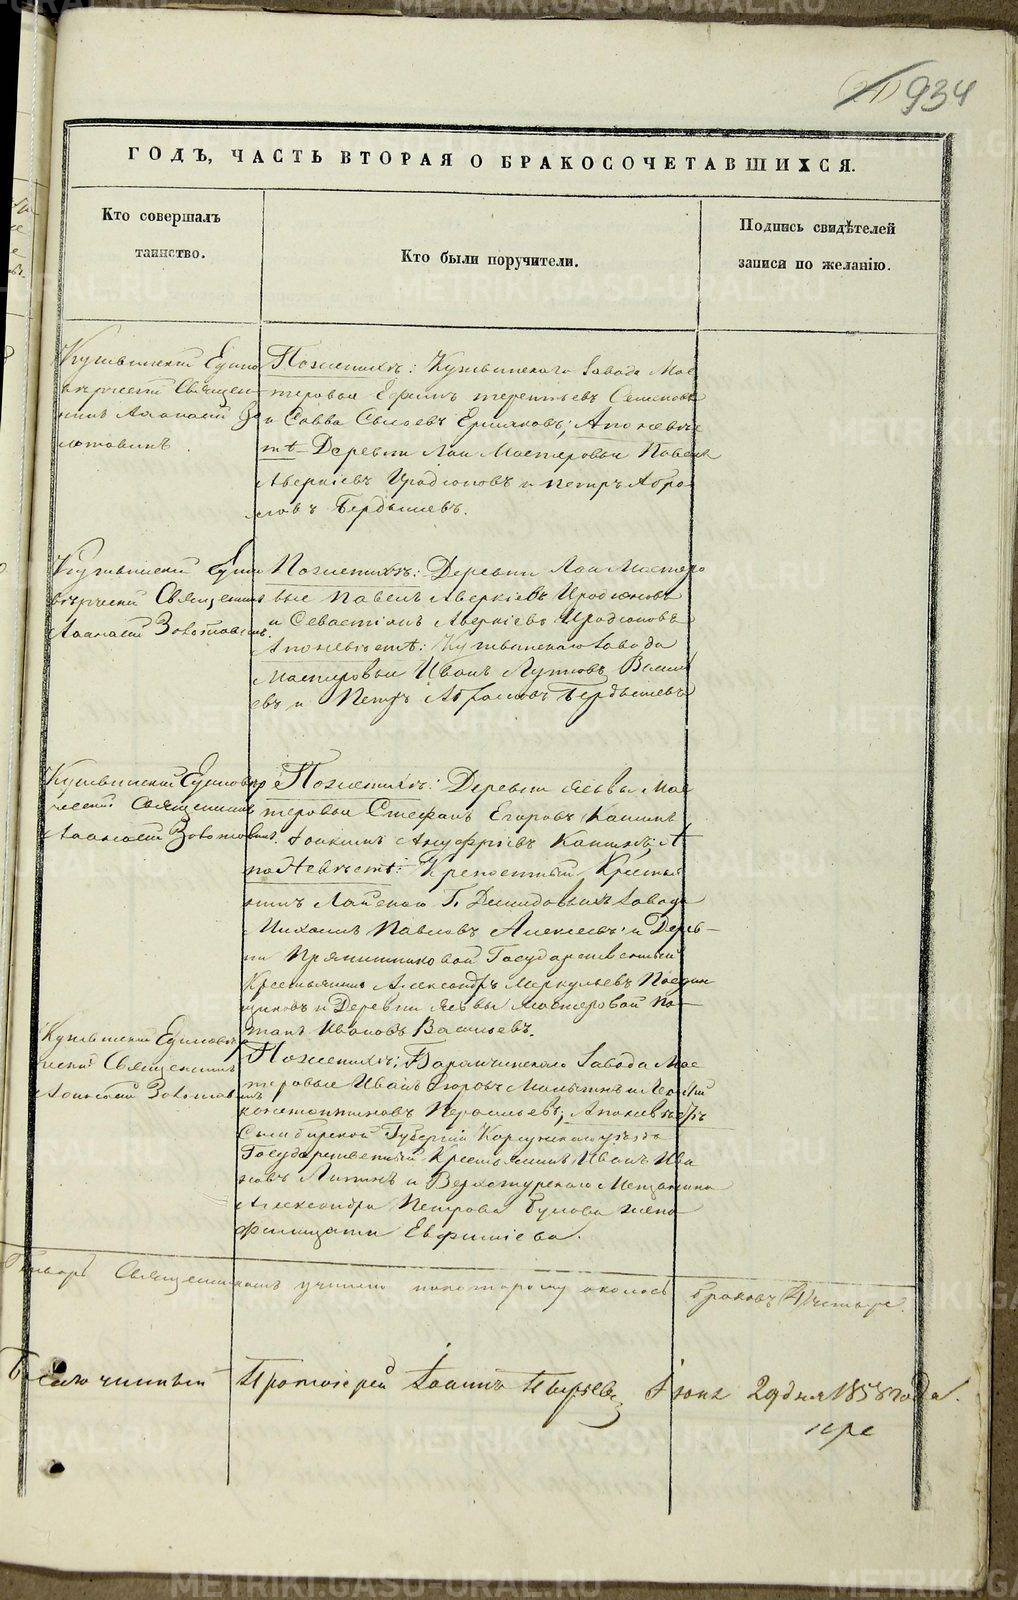 (21) 934
ГОДЪ, ЧАСТЬ ВТОРАЯ О БРАКОСОЧЕТАВШИХСЯ.
Кто совершалъ
таинство.
Кто были поручители.
Подпись свидѣтелей
записи по желанію.
Кушвинскій Едино
вѣрческій Священ
никъ Аѳанасій Зо
лотавинъ.
По женихѣ: Кушвинскаго завода Мас
теровые Ефимъ Терентьевъ Семеновъ
и Савва Ермаковъ; А по невѣс
тѣ Деревни Лаи Мастеровые Павелъ
Аверкіевъ Иродіоновъ и Петръ Абра
мовъ Бердышевъ.
Кушвинскій Едино
вѣрческій Священникъ
Аѳанасій Золотавинъ.
По женихѣ: Деревни Лаи Мастеро
вые Павелъ Аверкіевъ Иродіоновъ
и Севастіанъ Аверкіевъ Иродіоновъ
А по невѣстѣ: Кушвинскаго завода
Мастеровые Иванъ Василь
евъ и Петръ Абрамовъ Бердышевъ
Кушвинскій Единовѣр
ческій Священникъ
Аѳанасій Золотавинъ.
По женихѣ: Деревни Мас
теровые Стефанъ Егоровъ
Іоакимъ Ануфріевъ А
по Невѣстѣ: Крепостный Крестья
нинъ Лайскаго Г. Демидовыхъ завода
Михаилъ Павловъ Алексѣевъ и Дерев
ни Прянишниковой Государственный
Крестьянинъ Александръ Меркурьевъ
и Деревни Мастеровой По
тапъ Ивановъ Васильевъ.
Кушвинскій Единовѣр
ческій Священникъ
Аѳанасій Золотавинъ
По женихѣ: Баранчинскаго Завода Мас
теровые Иванъ Егоровъ и
Константиновъ А по невѣстѣ
Симбирской Губерніи Корсунскаго уѣзда
Государственный Крестьянинъ Иванъ Ива
новъ и Верхотурскаго Мещанина
Александра Петрова жена
Фелицата Евфиміева.
Январѣ Священникомъ браковъ (4) четыре.
Благочинный Протоіерей Іоаннъ Іюня 29 дня 1858 года.